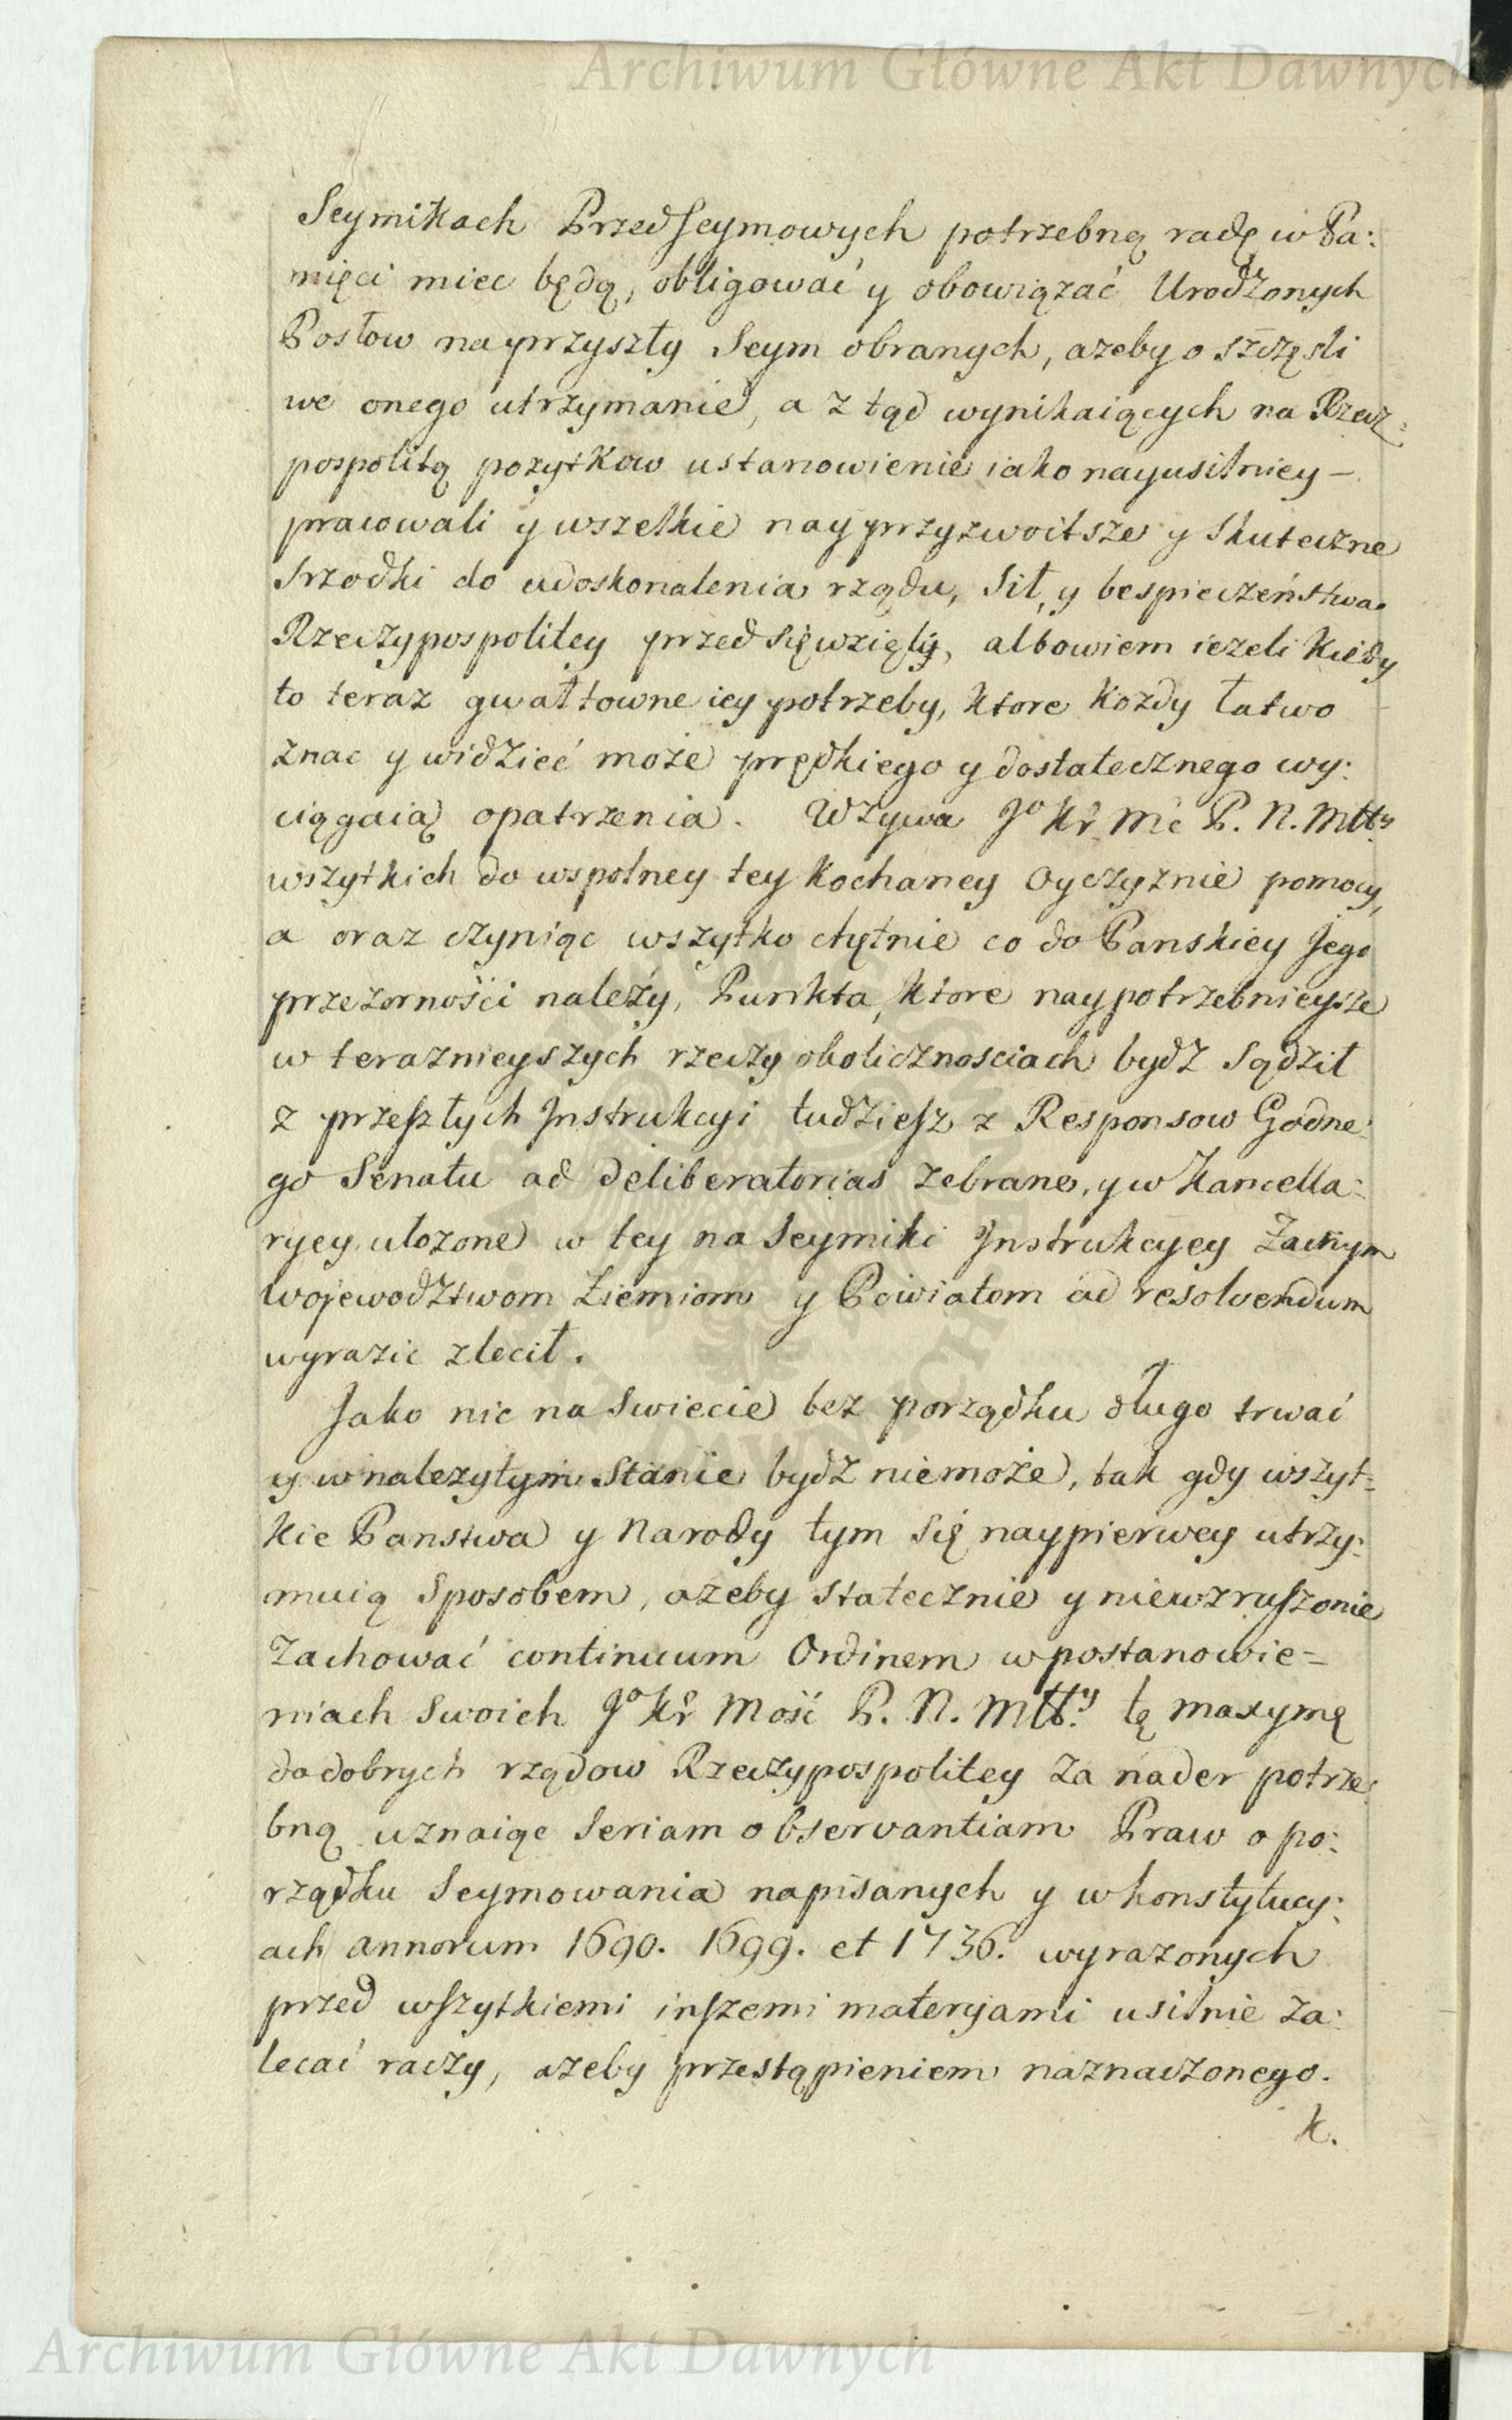 Archiwum Główne Akt Dawnych
Seymikach Przedseymowych potrzebną radę w Pa:
mięci miec będą, obligować y obowiązać Urodzonych
Posłow na przyszły Seym obranych, azeby o szczęsli
we onego utrzymanie, a z tąd wynikaiących na Rzecz=
pospolitą pozytkow ustanowienie iako nayusilniey –
pracowali y wszelkie nayprzyzwoitsze y skuteczne
Srzodki do udoskonalenia rządu, Sił, y bespieczeństwa
Rzeczypospolitey przedsięwzięly, albowiem iezeli kiedy
to teraz gwałtowne iey potrzeby, ktore kozdy łatwo
znac y widzieć może prędkiego y dostatecznego wy:
ciągaią opatrzenia. Wzywa Jo Kr Mć P. N. Mtty
wszytkich do wspolney tey kochaney Oyczyznie pomocy,
a oraz czyniąc wszytko chętnie co do Panskiey Jego
przezorności należy, Punkta, ktore naypotrzebnieysze
w teraznieyszych rzeczy okolicznosciach bydz sądził
z przeszłych Jnstrukcyi tudziesz z Responsow Godne:
go Senatu ad deliberatorias zebrane, y w Kancella:
ryey ulozone w tey na Seymiki Jnstrukcyey Zacnym
Wojewodztwom Ziemiom y Powiatom ad resolvendum
wyrazic zlecił.
Jako nic na swiecie bez porządku długo trwać
y w nalezytym stanie bydz niemoże, tak gdy wszyt=
kie Panstwa y Narody tym się naypierwey utrzy:
muią Sposobem, azeby statecznie y niewzruszonie
Zachować continuum Ordinem w postanowie=
niach swoich Jo Kr Mość P. N. Mtty tę maxymę
do dobrych rządow Rzeczypospolitey za nader potrze:
bną uznaiąc Seriam observantiam Praw o po:
rządku Seymowania napisanych y w konstytucy:
ach annorum 1690. 1699. et 1736. wyrazonych
przed wszytkiemi inszemi materyami usilnie za:
lecać raczy, azeby przestąpieniem naznaczonego.
k.
Archiwum Główne Akt Dawnych